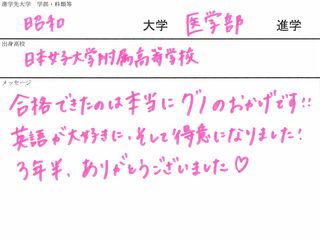 進学先大学 学部・科類等
昭和 大学 医学部 進学
出身高校
日本女子大学附属高等学校
メッセージ
合格できたのは本当にグノのおかげです!!
英語が大好きに、そして得意になりました!
3年半、ありがとうございました♡